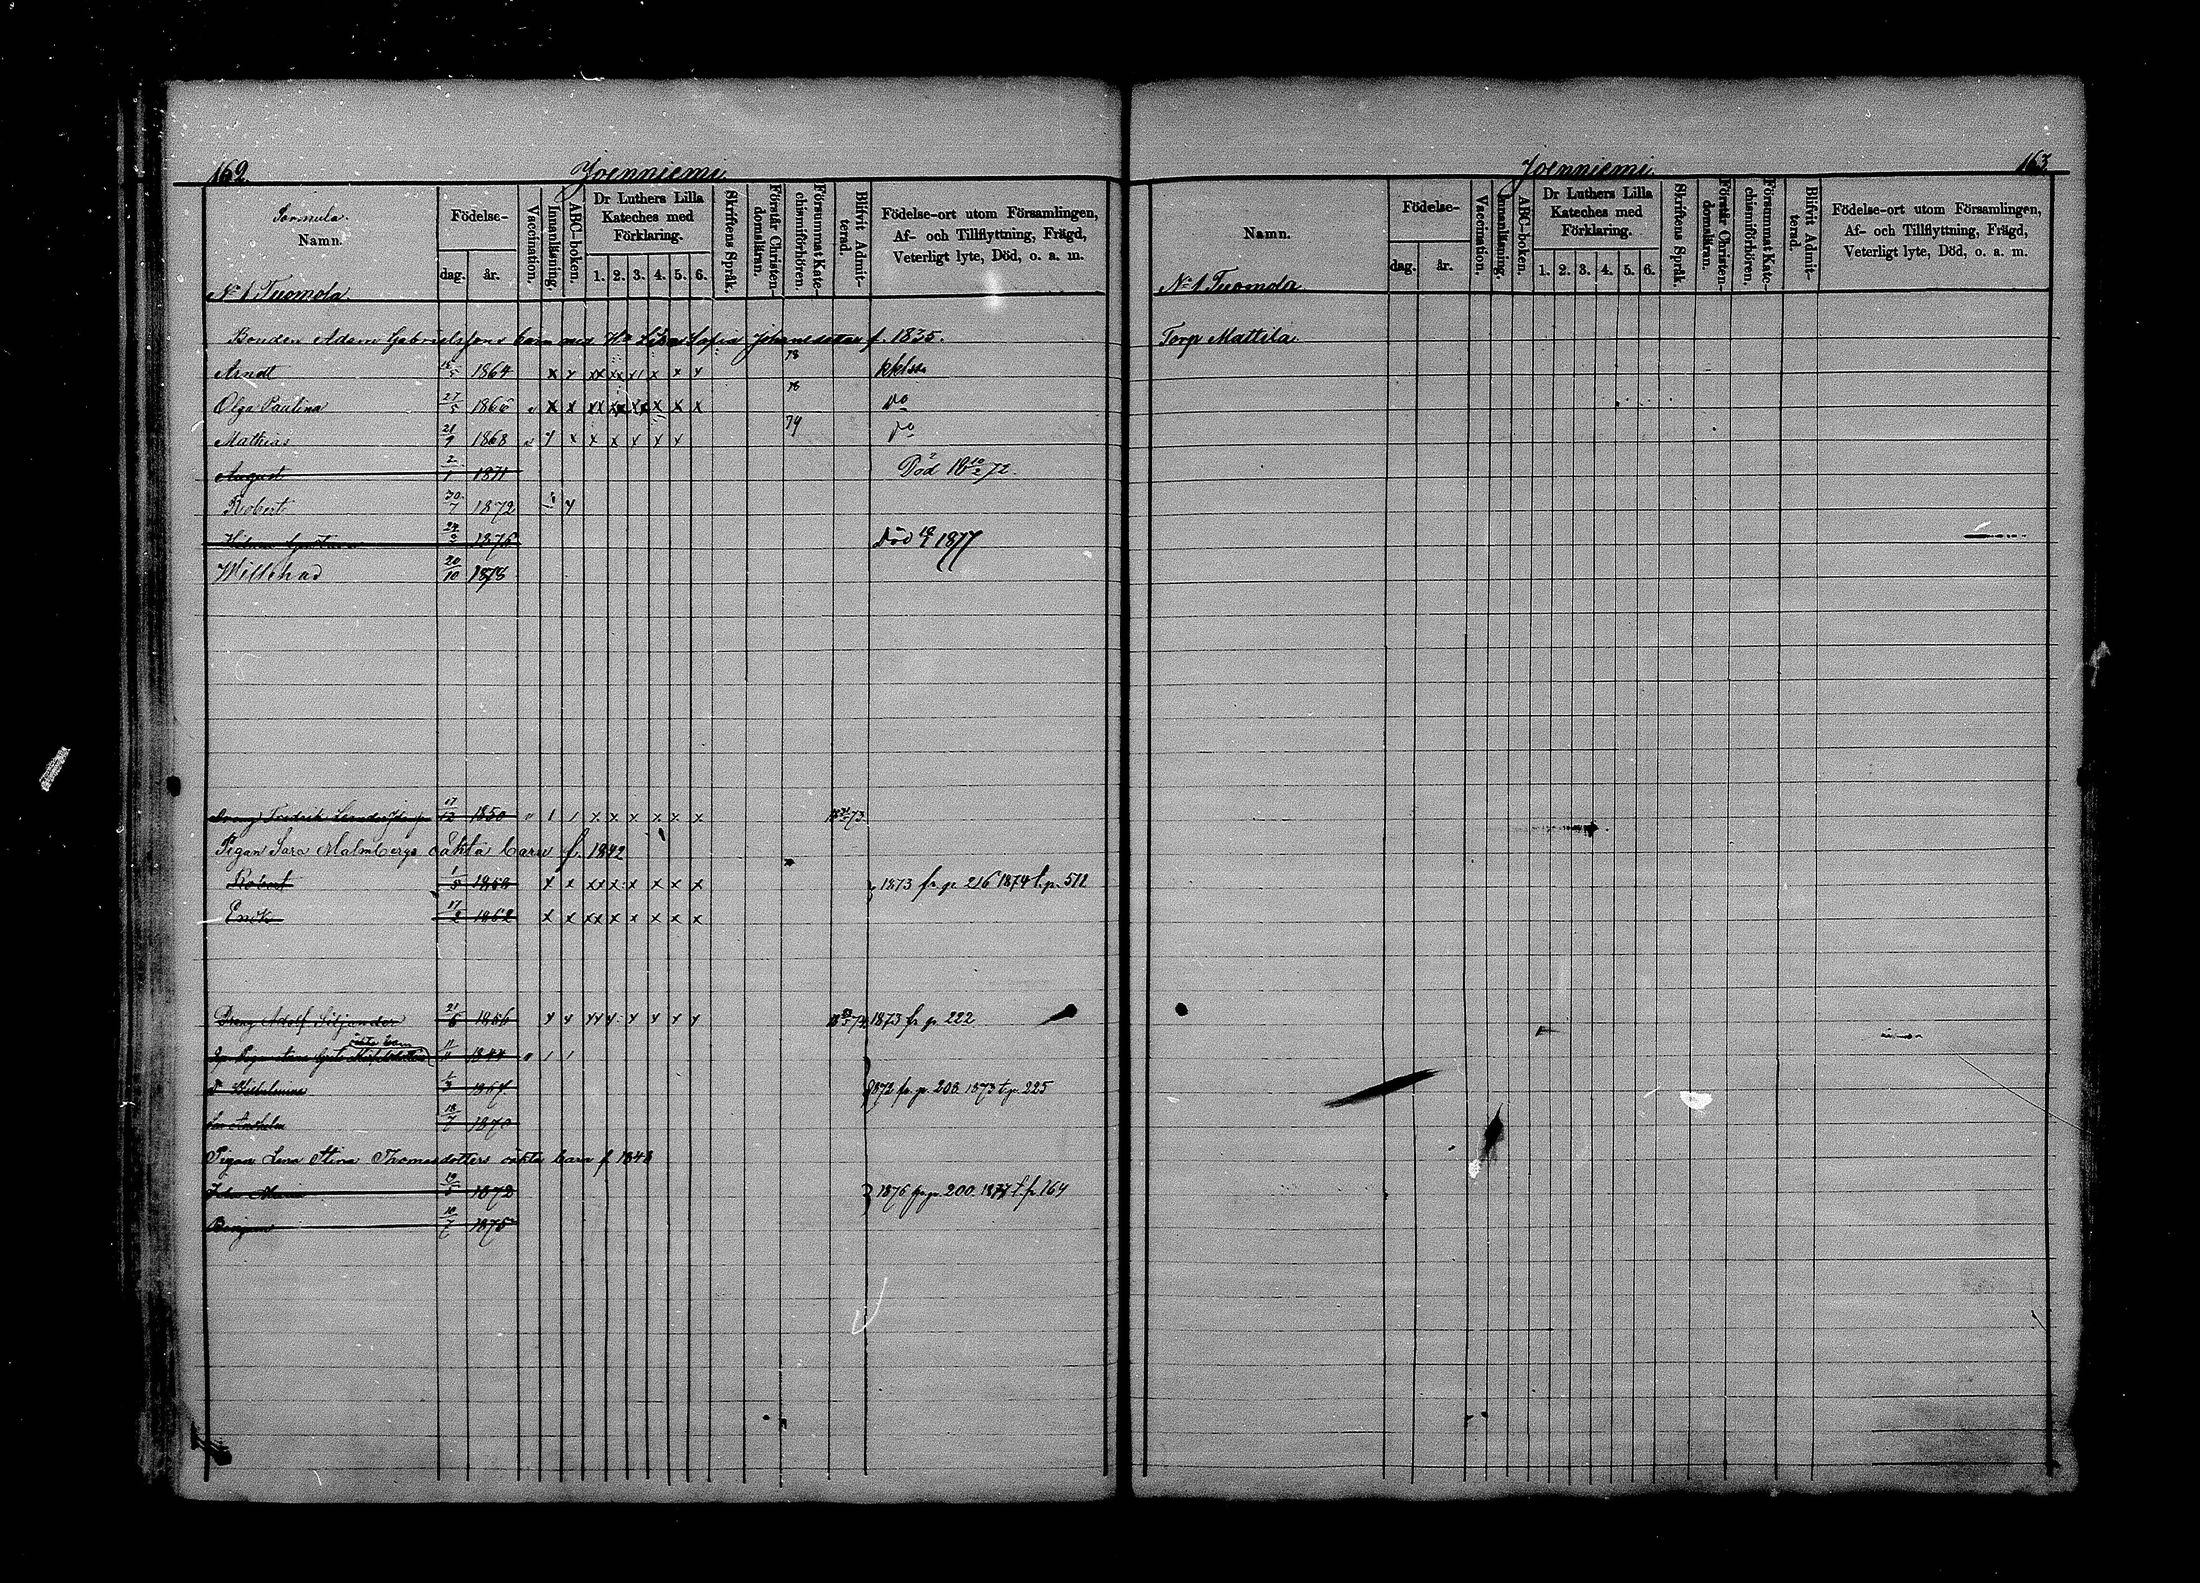 162.
Joenniemi
Namn.
Födelse-
dag.
år.
Vaccination.
Innanläsning.
ABC-boken.
Dr Luthers Lilla Kateches med Förklaring.
1. 2. 3. 4. 5. 6.
Skriftens Språk.
Förstår Christendomsläran.
Försummat Katechismiförhören.
Blifvit Admitterad.
Födelse-ort utom Församlingen,
Af- och Tillflyttning, Frägd,
Veterligt lyte, Död, o. a. m.
No 1 Tuomola
Bonden Adam Gabrielssons barn med Sofia Johansdotter f. 1835.
Arndt 1864 x x xx xx x x x 78
Olga Paulina 27/5 1866 " x x xx xx x x x x 76 Do
Mathias 21/9 1868 " x x x x x x 79 Do
August 2/1 1871 Död 18 10/2 72.
Robert 30/7 1872
1875 Död 1877
Willehad 20/10 1878
Fredrik 17/12 1850 " x x x x x x 73
Pigan Sara Malmbergs oäkta barn f. 1842
Robert 1/5 x x xx x x x x x } 1873 fr. p. 216 1874 t. p. 511
Erik 17/2 1862 x x xx x x x x x
Dreng Adolf Siljander 21/6 1856 74 1873 fr p 222
oäkta barn
Pigan 1844 " / /
Wilhelmina 1867. 1872 fr. p. 208. 1873 t. p. 225
18/7 1870
Pigan Lena Stina Thomasdotters oäkta barn f 1848
Maria 19/5 1872 } 1876 fr. p. 200. 1877 t. p. 164
18/7 1875
Joenniemi
163.
Namn.
Födelse-
dag.
år.
Vaccination.
Innanläsning.
ABC-boken.
Dr Luthers Lilla Kateches med Förklaring.
1. 2. 3. 4. 5. 6.
Skriftens Språk.
Förstår Christendomsläran.
Försummat Katechismiförhören.
Blifvit Admitterad.
Födelse-ort utom Församlingen,
Af- och Tillflyttning, Frägd,
Veterligt lyte, Död, o. a. m.
No 1 Tuomola
Torp Mattila